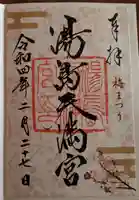 奉拝
梅まつり
湯島天満宮
令和四年二月二十七日